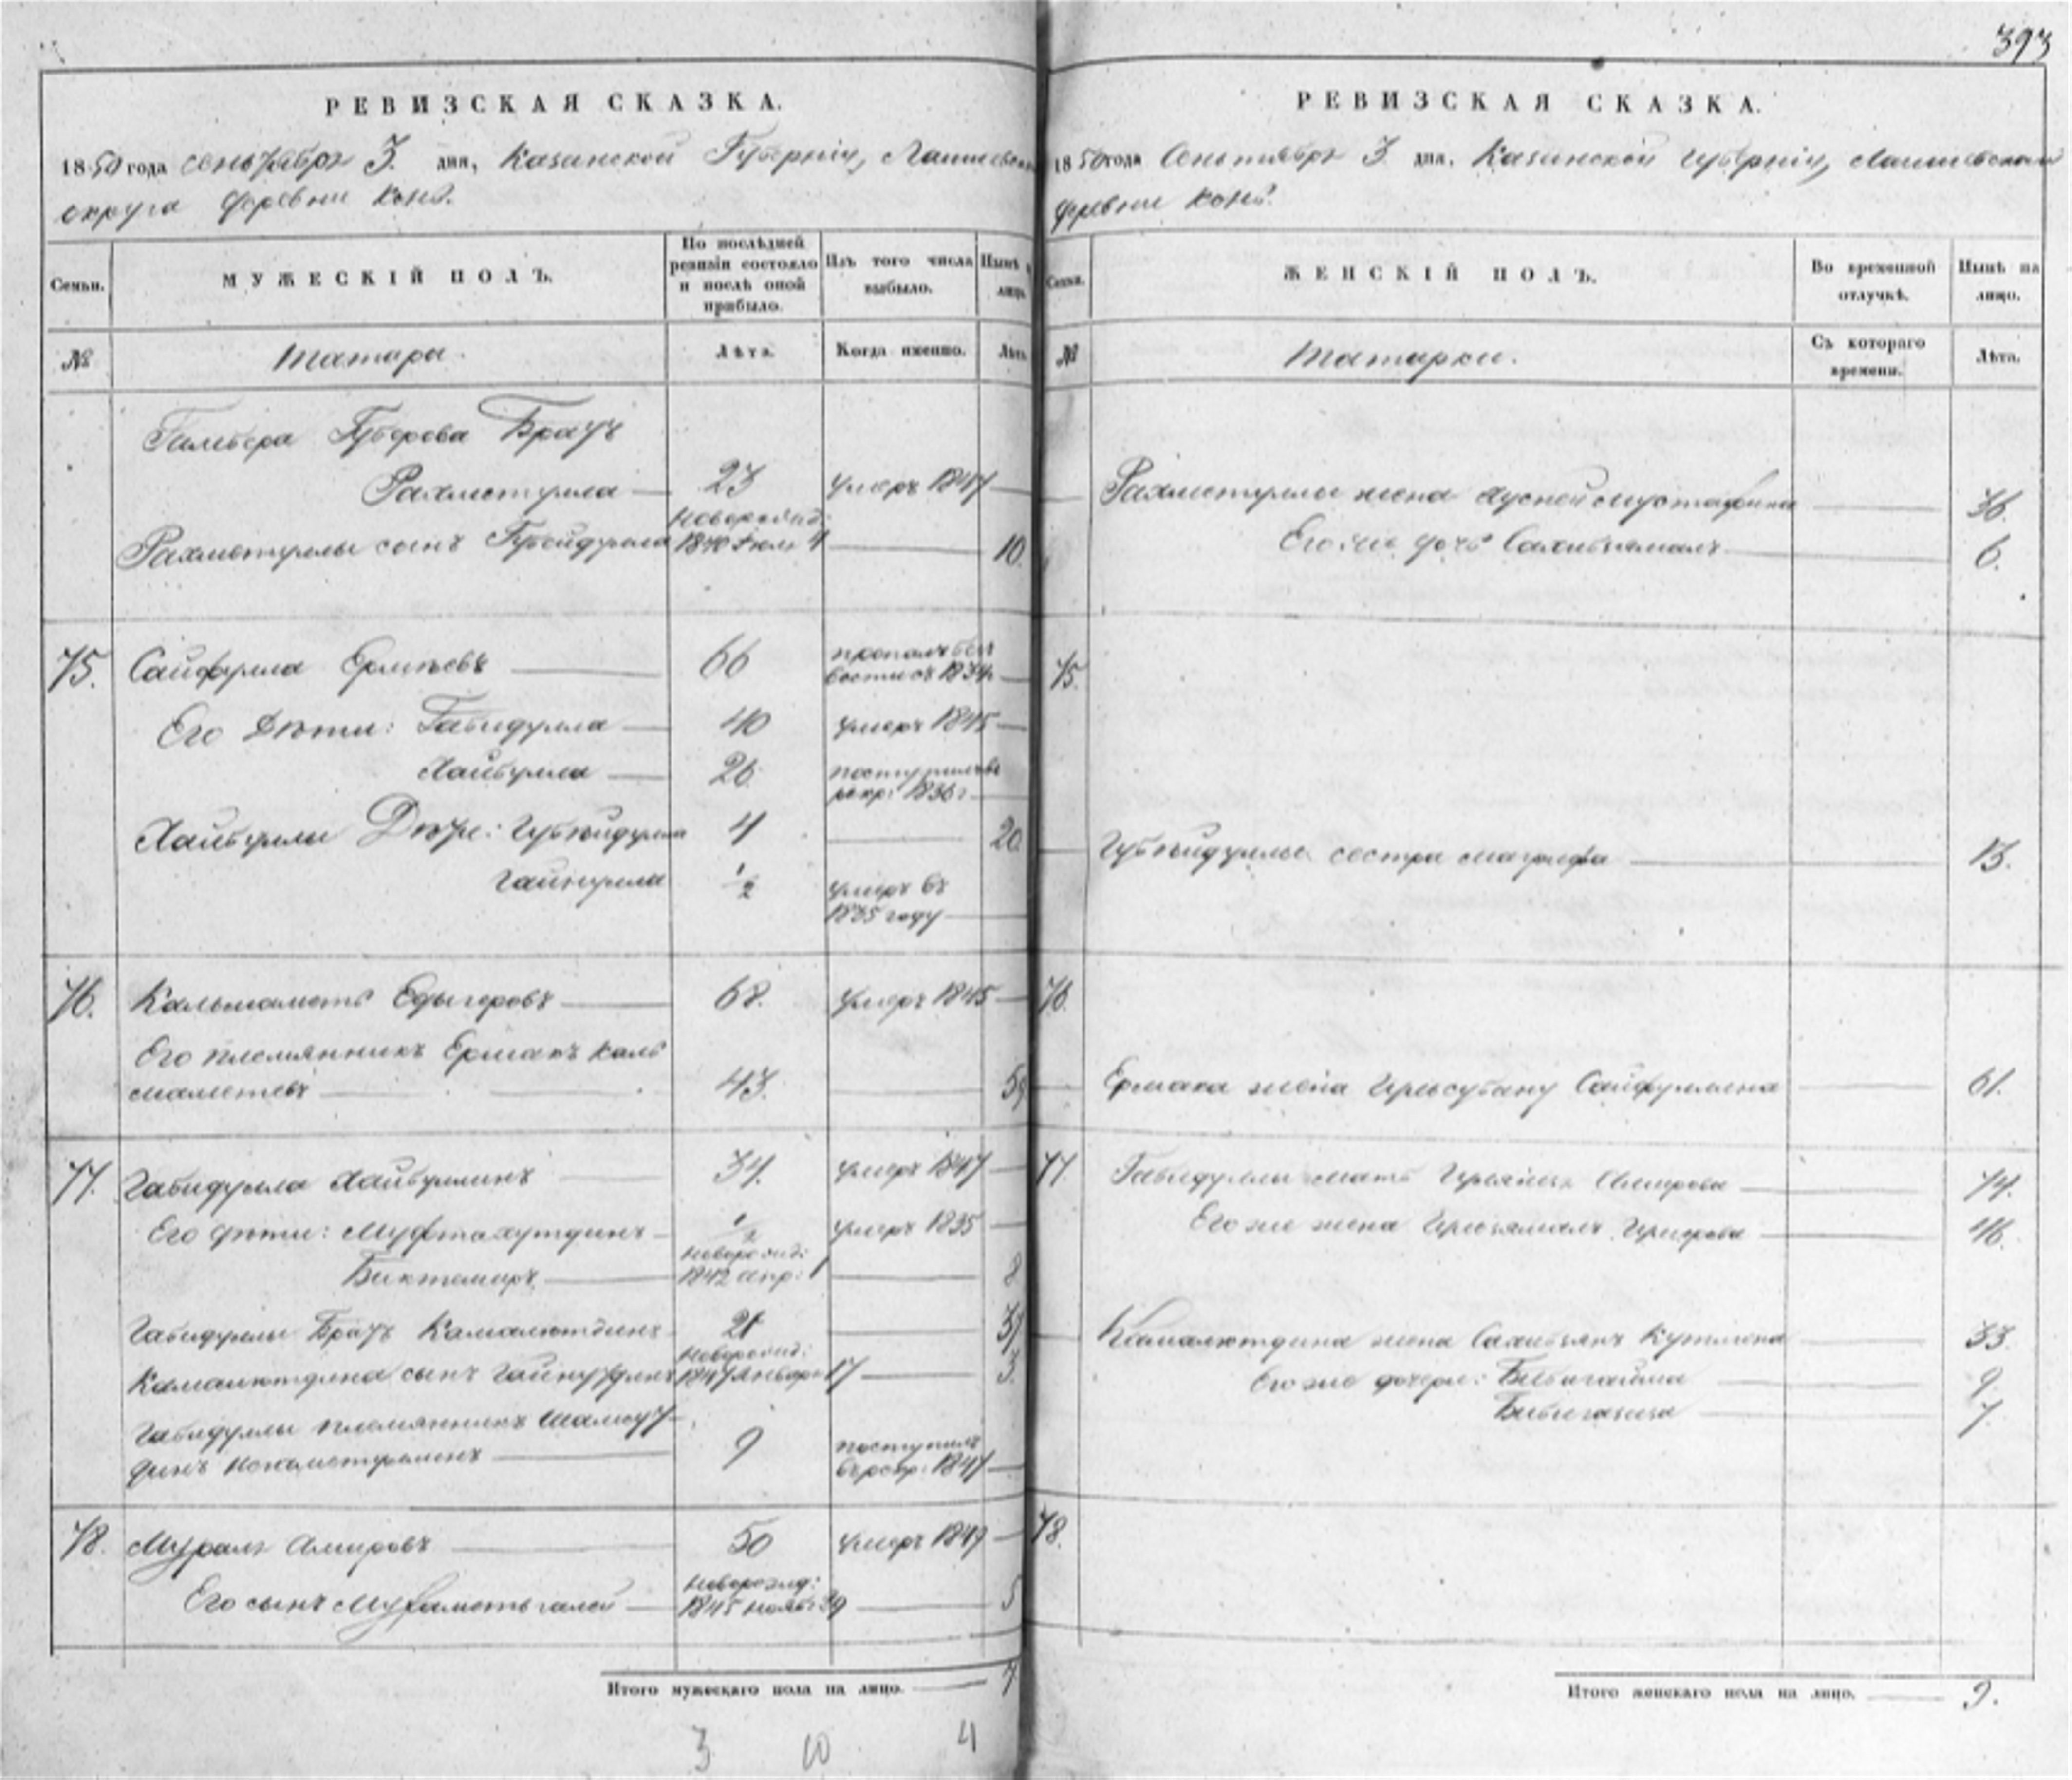 393
РЕВИЗСКАЯ СКАЗКА.
1850 года сентября 3. дня, Казанской Губерніи, Лаишевского
округа деревни Конь.
Семьи.
МУЖЕСКІЙ ПОЛЪ.
По послѣдней
ревизіи состояло
и послѣ оной
прибыло.
Изъ того числа
выбыло.
Нынѣ
лицо
№
Татары.
Лѣта.
Когда именно.
Лѣта
Губерова Братъ
Рахметулла 23 умеръ 1847
новорожд:
Рахметуллы сынъ Губейдулла 1840 Іюля 4 10.
75. Сайфулла 66 пропалъ безъ
вести съ 1834
Его Дѣти: Габидулла 40 умеръ 1845
Хайбулла 26 поступилъ въ
рекр: 1836 г
Хайбуллы Дѣти: Губейдулла 4 20.
Гайнулла 1/2 умеръ въ
1835 году
76. Кальмаметь Едыгеровъ 68. умеръ 1845
Его племянникъ Ермакъ Каль
маметевъ 43. 59
77. Габидулла Хайбуллинъ 34. умеръ 1847
Его дѣти: Муфтахутдинъ 1/2 умеръ 1835
новорожд:
Биктемиръ 1842 апр: 1 8
Габидуллы Братъ Камалютдинъ 21 37
новорожд:
Камалютдина сынъ Гайнутдинъ 1847 Января 17 3.
Габидуллы племянникъ Шамсут
динъ 9 поступилъ
въ рекр: 1847
78. Муралы Амировъ 50 умеръ 1849
новорожд:
Его сынъ Мухаметьгалей 1845 нояб: 29 5
Итого мужескаго пола на лицо. 7
3 10 4
РЕВИЗСКАЯ СКАЗКА.
1850 года Сентября 3 дня, Казанской Губерніи, Лаишевскаго
деревни Конь.
Семьи.
ЖЕНСКІЙ ПОЛЪ.
Во временной
отлучкѣ.
Нынѣ на
лицо.
№
Татарки.
Съ котораго
времени.
Лѣта.
Рахметуллы жена Мустафина 36.
Его же дочь Сахибзямалъ 6.
75.
Губейдуллы сестра Магруфа 15.
76.
Ермака жена Сайфуллина 61.
77. Габидуллы мать Амирова 74.
Его же жена 46.
Камалютдина жена Сахибзянъ 33
Его же дочери: Бибигайша 9.
Бибигазиза 7.
78.
Итого женскаго пола на лицо. 9.